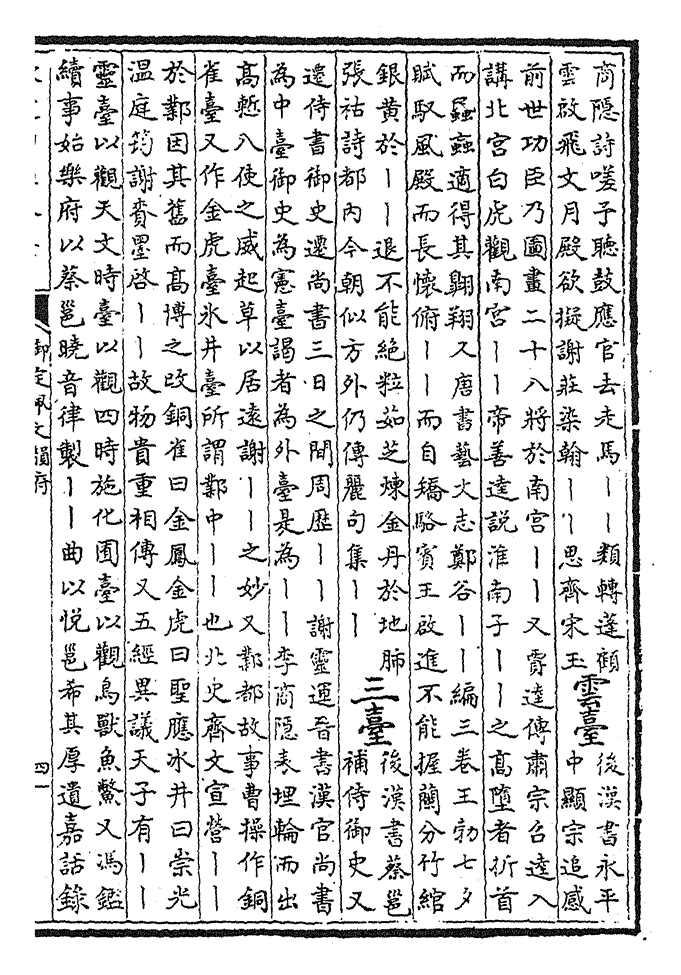 商隱詩嗟予聽鼓應官去走馬丨丨類轉蓬顧
雲啟飛文月殿欲擬謝莊染翰丨丨思齊宋玉
雲臺
後漢書永平
中顯宗追感
前世功臣乃圖畫二十八將於南宮丨丨又賈逵傳肅宗召逵入
講北宮白虎觀南宮丨丨帝善逵說淮南子丨丨之高墮者折首
而蝱適得其翺翔又唐書藝文志鄭谷丨丨編三卷王勃七夕
賦馭風殿而長懷俯丨丨而自矯駱賓王啟進不能握蘭分竹綰
銀黃於丨丨退不能絕粒茹芝煉金丹於地肺
張祜詩都內今朝似方外仍傳麗句集丨丨
三臺
後漢書蔡邕
補侍御史又
遷侍書御史遷尚書三日之間周歷丨丨謝靈運晉書漢官尚書
為中臺御史為憲臺謁者為外臺是為丨丨李商隱表埋輪而出
高慙八使之威起草以居遠謝丨丨之妙又鄴都故事曹操作銅
雀臺又作金虎臺冰井臺所謂鄴中丨丨也北史齊文宣營丨丨
於鄴因其舊而高博之改銅雀曰金鳳金虎曰聖應冰井曰崇光
溫庭筠謝賚墨啟丨丨故物貴重相傳又五經異議天子有丨丨
靈臺以觀天文時臺以觀四時施化囿臺以觀鳥獸魚鼈又馮鑑
續事始樂府以蔡邕曉音律製丨丨曲以悅邕希其厚遺嘉話錄
御定佩文韻府
四一